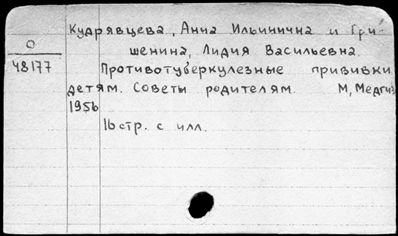 Кудрявцева, Анна Ильинична и Гри-
шенина, Лидия Васильевна.
О
48177
Противотуберкулезные прививки
детям. Советы родителям. М, Медгиз
1956
16 стр. с илл.